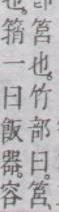 筥也。竹部曰。筥、
箱一曰飯器。容
也。